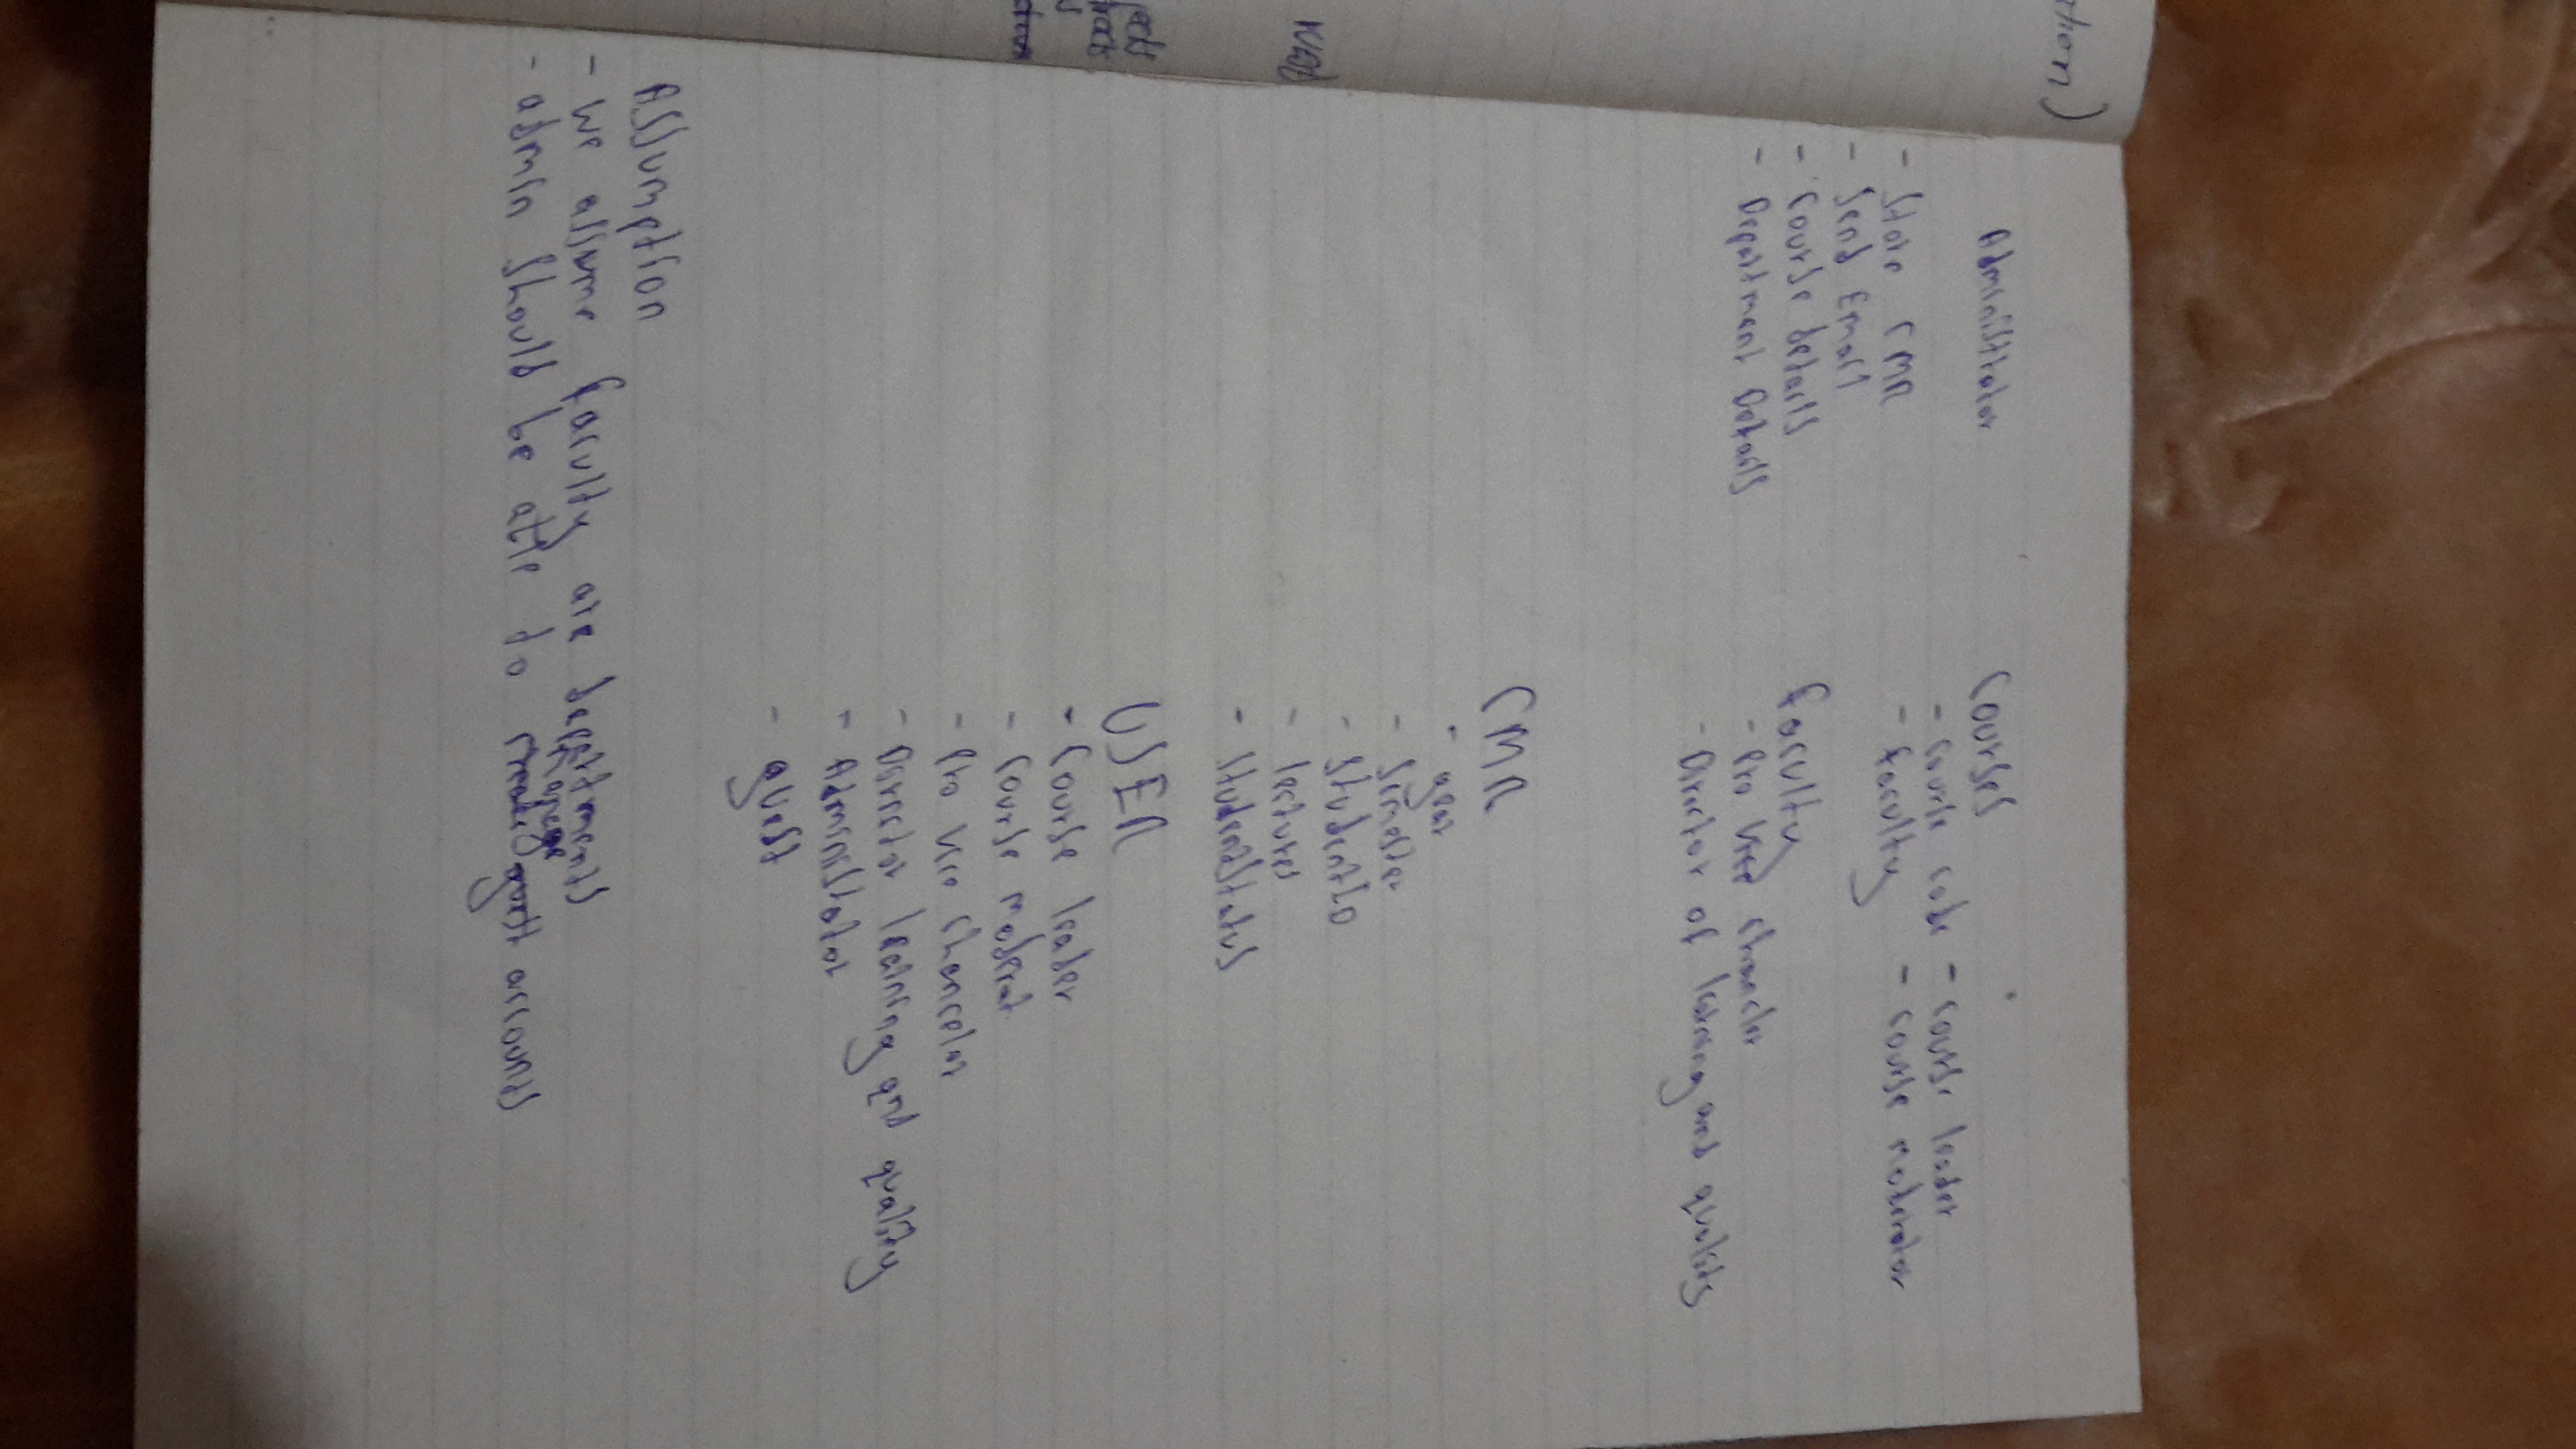 Administrator
- Store CMR
- Send Email
- Course details
- Department Details
Courses
- Course code - Course leader
- faculty - Course moderator
faculty
- Pro Vice
- Director of learning and quality
CMR
- year
- Semester
- StudentID
- lectures
- StudentStatus
USER
- Course leader
- Course moderat
- Pro Vice Chancelor
- Director learning and quality
- Administator
- guest
Assumption
- We assume faculty are departments
manage
- admin should be able to create guest accounts